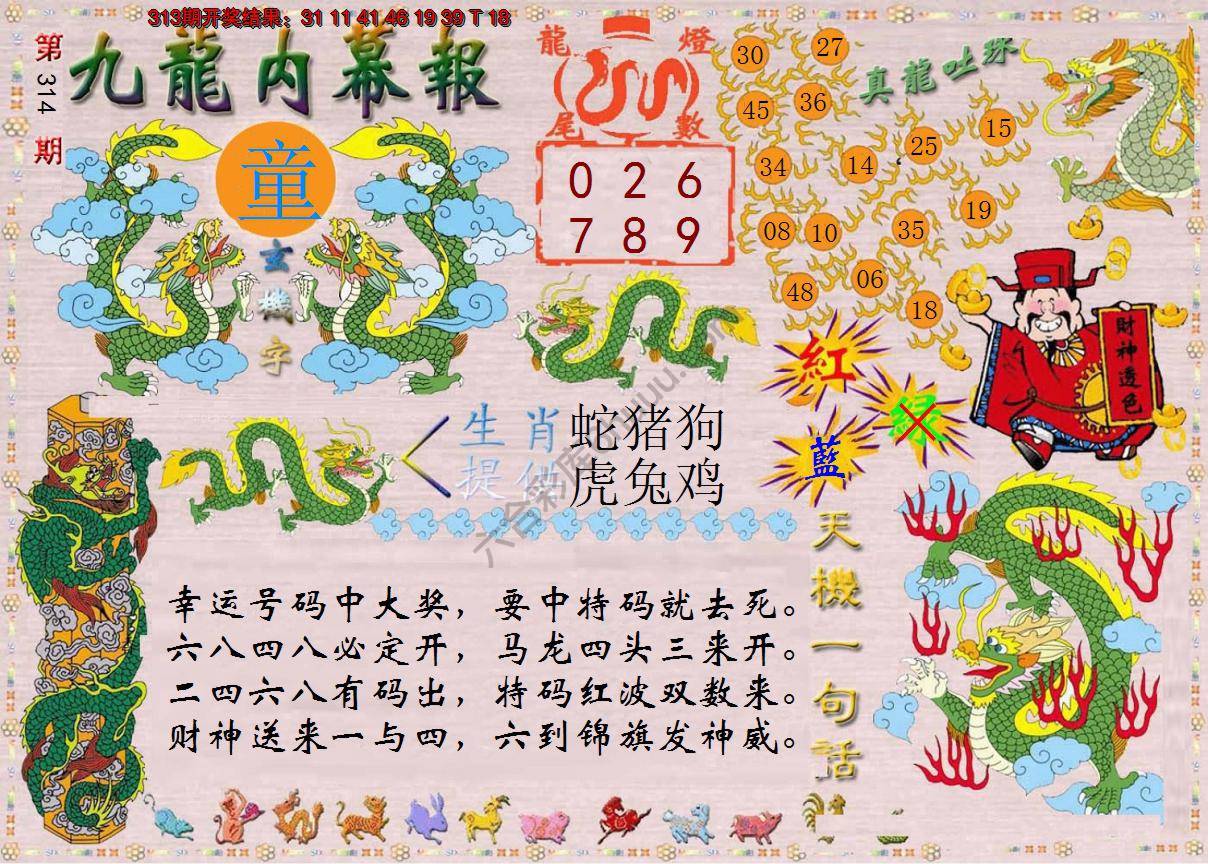 313期开奖结果：31 11 41 46 19 39 T 18
第314期
九龍内幕報
童
玄機字
龍燈
尾數
0 2 6
7 8 9
真龍吐珠
30
27
45
36
25
15
34
14
19
08
10
35
48
06
18
紅
绿
藍
財神透色
生肖
提供
蛇猪狗
虎兔鸡
天機一句話
幸运号码中大奖，要中特码就去死。
六八四八必定开，马龙四头三来开。
二四六八有码出，特码红波双数来。
财神送来一与四，六到锦旗发神威。